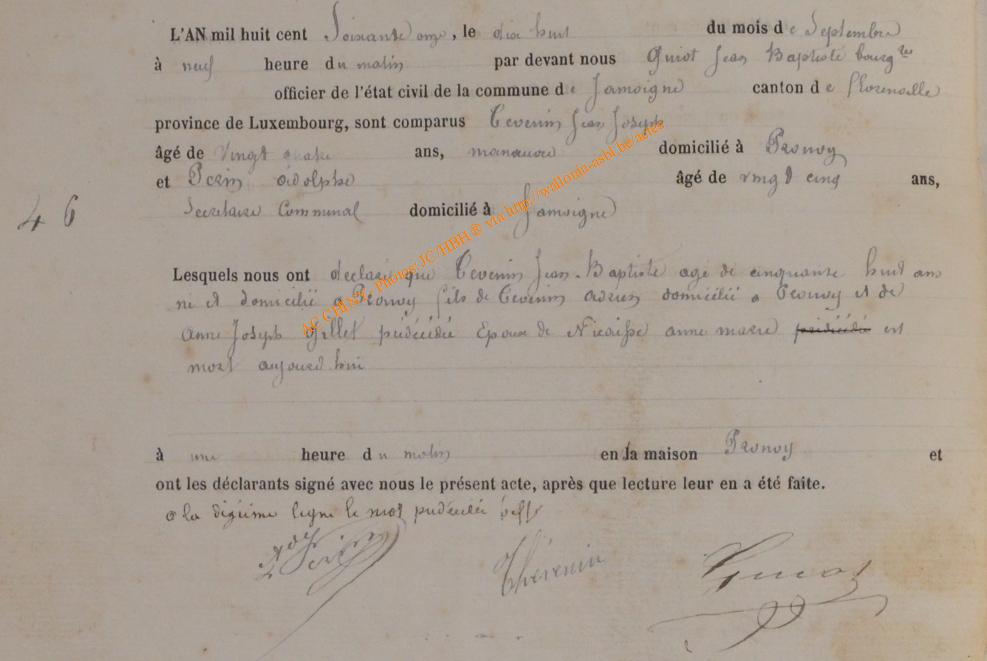 L'AN mil huit cent Soixante onze, le dix huit du mois de Septembre
à neuf heure du matin par devant nous Guiot Jean Baptiste bourgtre
officier de l'état civil de la commune de Jamoigne canton de florenville
province de Luxembourg, sont comparus Tevenin Jean Joseph
âgé de vingt quatre ans, manœuvre domicilié à Pronvoy
et Perin Adolphe âgé de vingt cinq ans,
46
Secretaire Communal domicilié à Jamoigne
Lesquels nous ont declaré que Tevenin Jean-Baptiste agé de cinquante huit ans
né et domicilié a Pronvoy fils de Tevenin adrien domicilié a Pronvoy et de
Anne Joseph Gillet prédécédée Epoux de anne marie prédécédée est
mort aujourd'hui
à une heure du matin en la maison Pronvoy et
ont les déclarants signé avec nous le présent acte, après que lecture leur en a été faite.
a la dixième ligne le mot prédécédée biffé
Ad Perin Thévenin Guiot
AC CHINY, Photos JC /HBH © via http://wallonia-asbl.be/actes